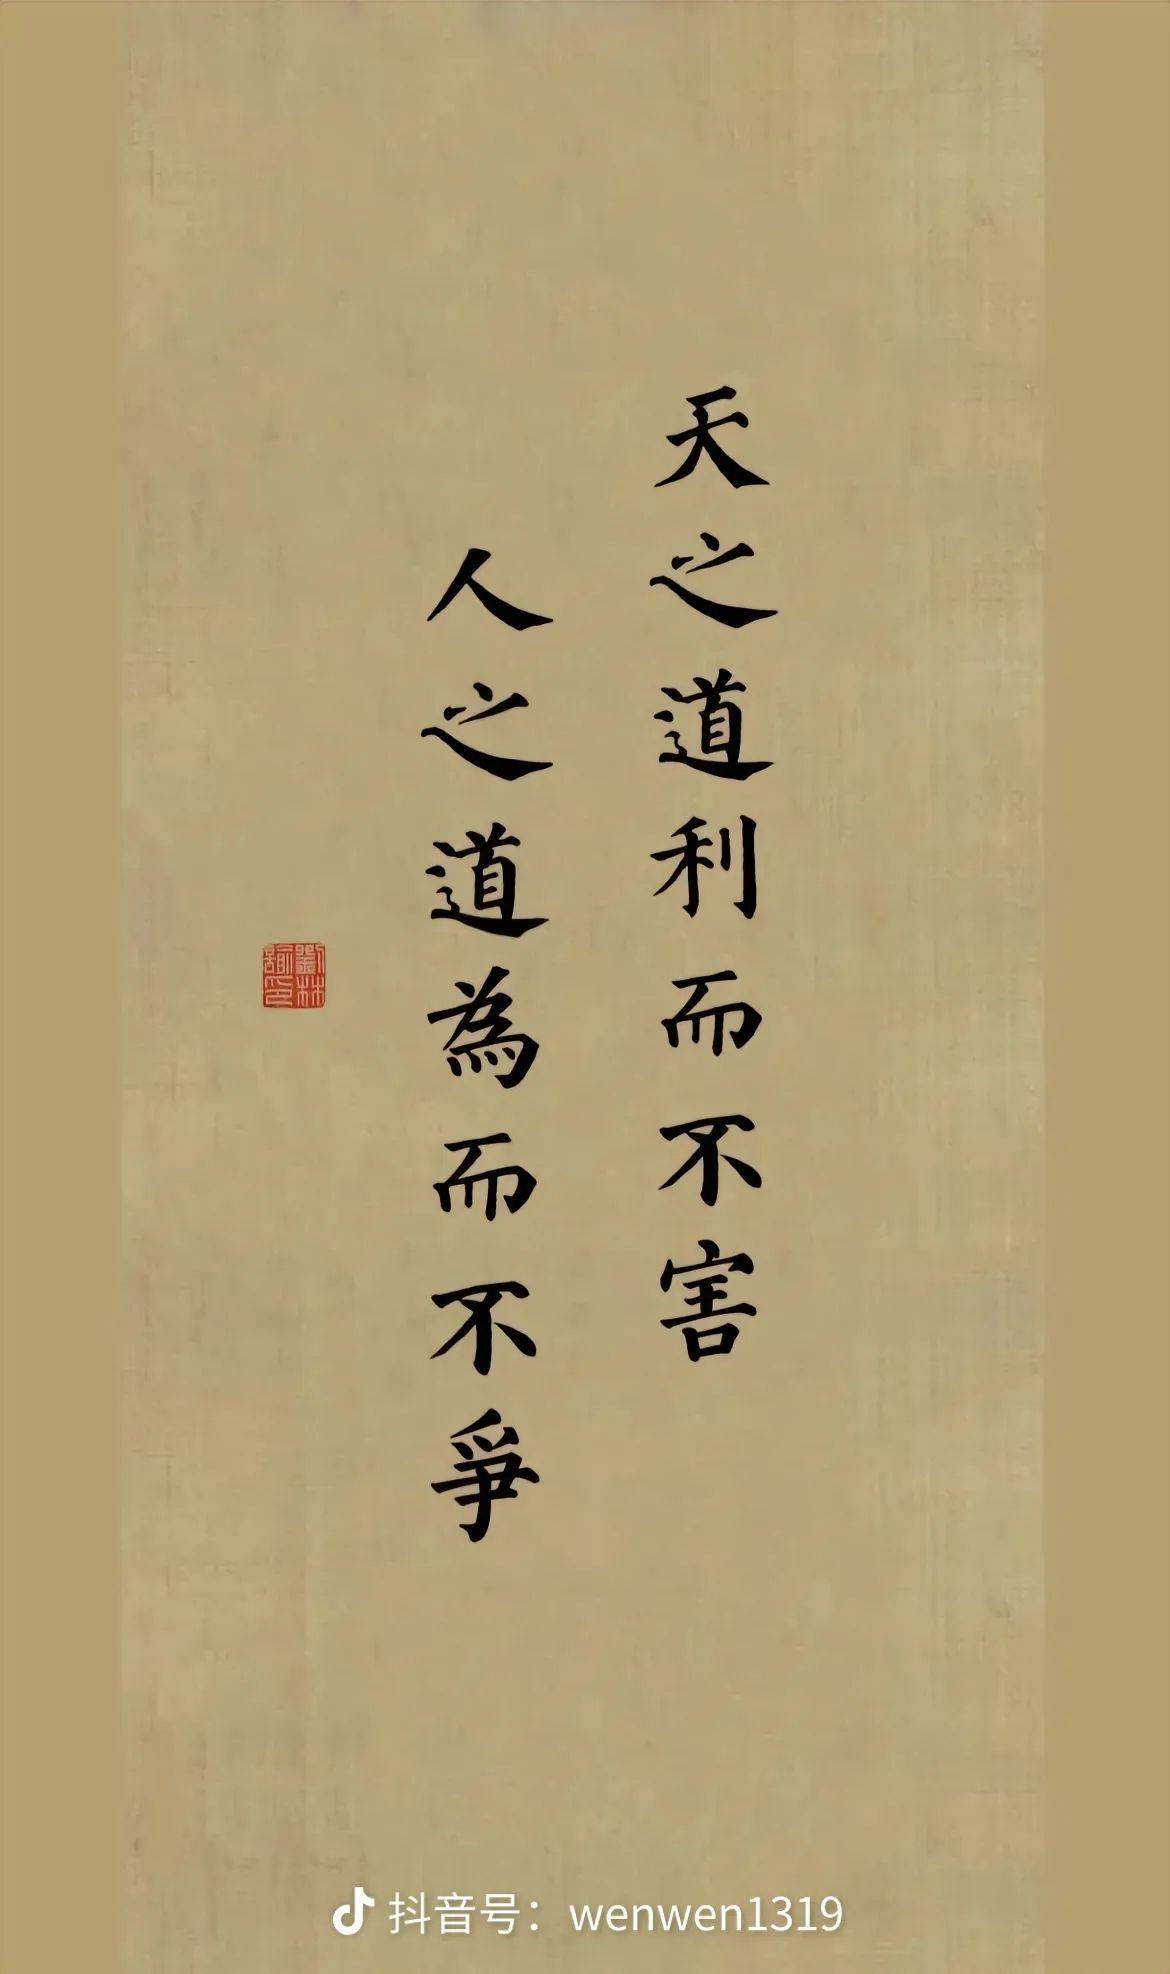 天之道利而不害
人之道為而不爭
抖音号：wenwen1319